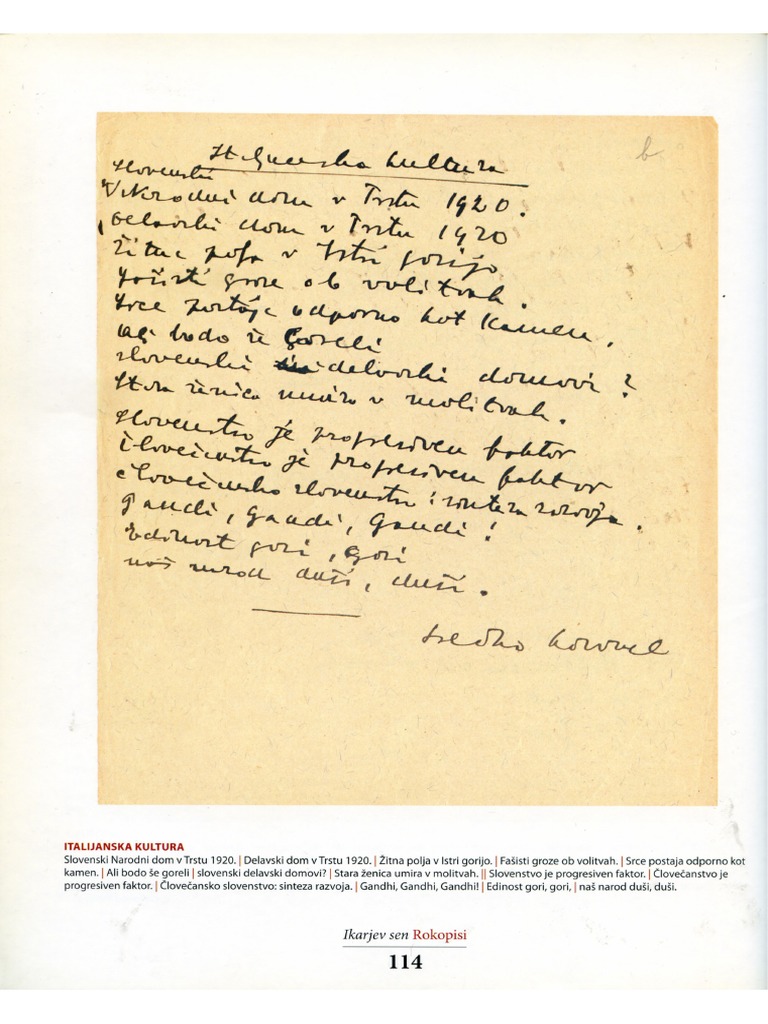 b
Italijanska kultura
Slovenski
Narodni dom v Trstu 1920.
Delavski dom v Trstu 1920
Žitna polja v Istri gorijo
Fašisti groze ob volitvah.
Srce postaja odporno kot kamen.
Ali bodo še goreli
slovenski delavski domovi?
Stara ženica umira v molitvah.
Slovenstvo je progresiven faktor
Človečanstvo je progresiven faktor
Človečansko slovenstvo: sinteza razvoja.
Gandi, Gandi, Gandi!
Edinost gori, gori
naš narod duši, duši.
Srečko Kosovel
ITALIJANSKA KULTURA
Slovenski Narodni dom v Trstu 1920. | Delavski dom v Trstu 1920. | Žitna polja v Istri gorijo. | Fašisti groze ob volitvah. | Srce postaja odporno kot
kamen. | Ali bodo še goreli | slovenski delavski domovi? | Stara ženica umira v molitvah. || Slovenstvo je progresiven faktor. | Človečanstvo je
progresiven faktor. | Človečansko slovenstvo: sinteza razvoja. | Gandhi, Gandhi, Gandhi! | Edinost gori, gori, | naš narod duši, duši.
Ikarjev sen Rokopisi
114